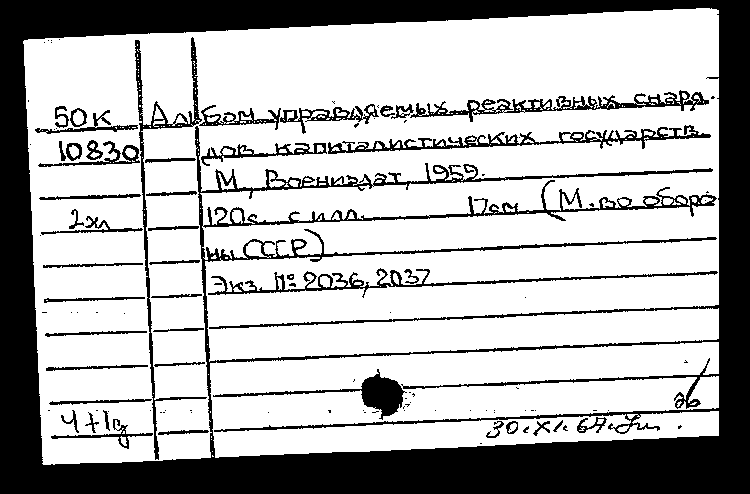 50к Альбом управляемых реактивных снаря-
10830 дов капиталистических государств.
М., Воениздат, 1959.
2хл 120с. с илл. 17см (М-во оборо
ны СССР)
Экз. № 2036, 2037
4+1д
30.XI.67.